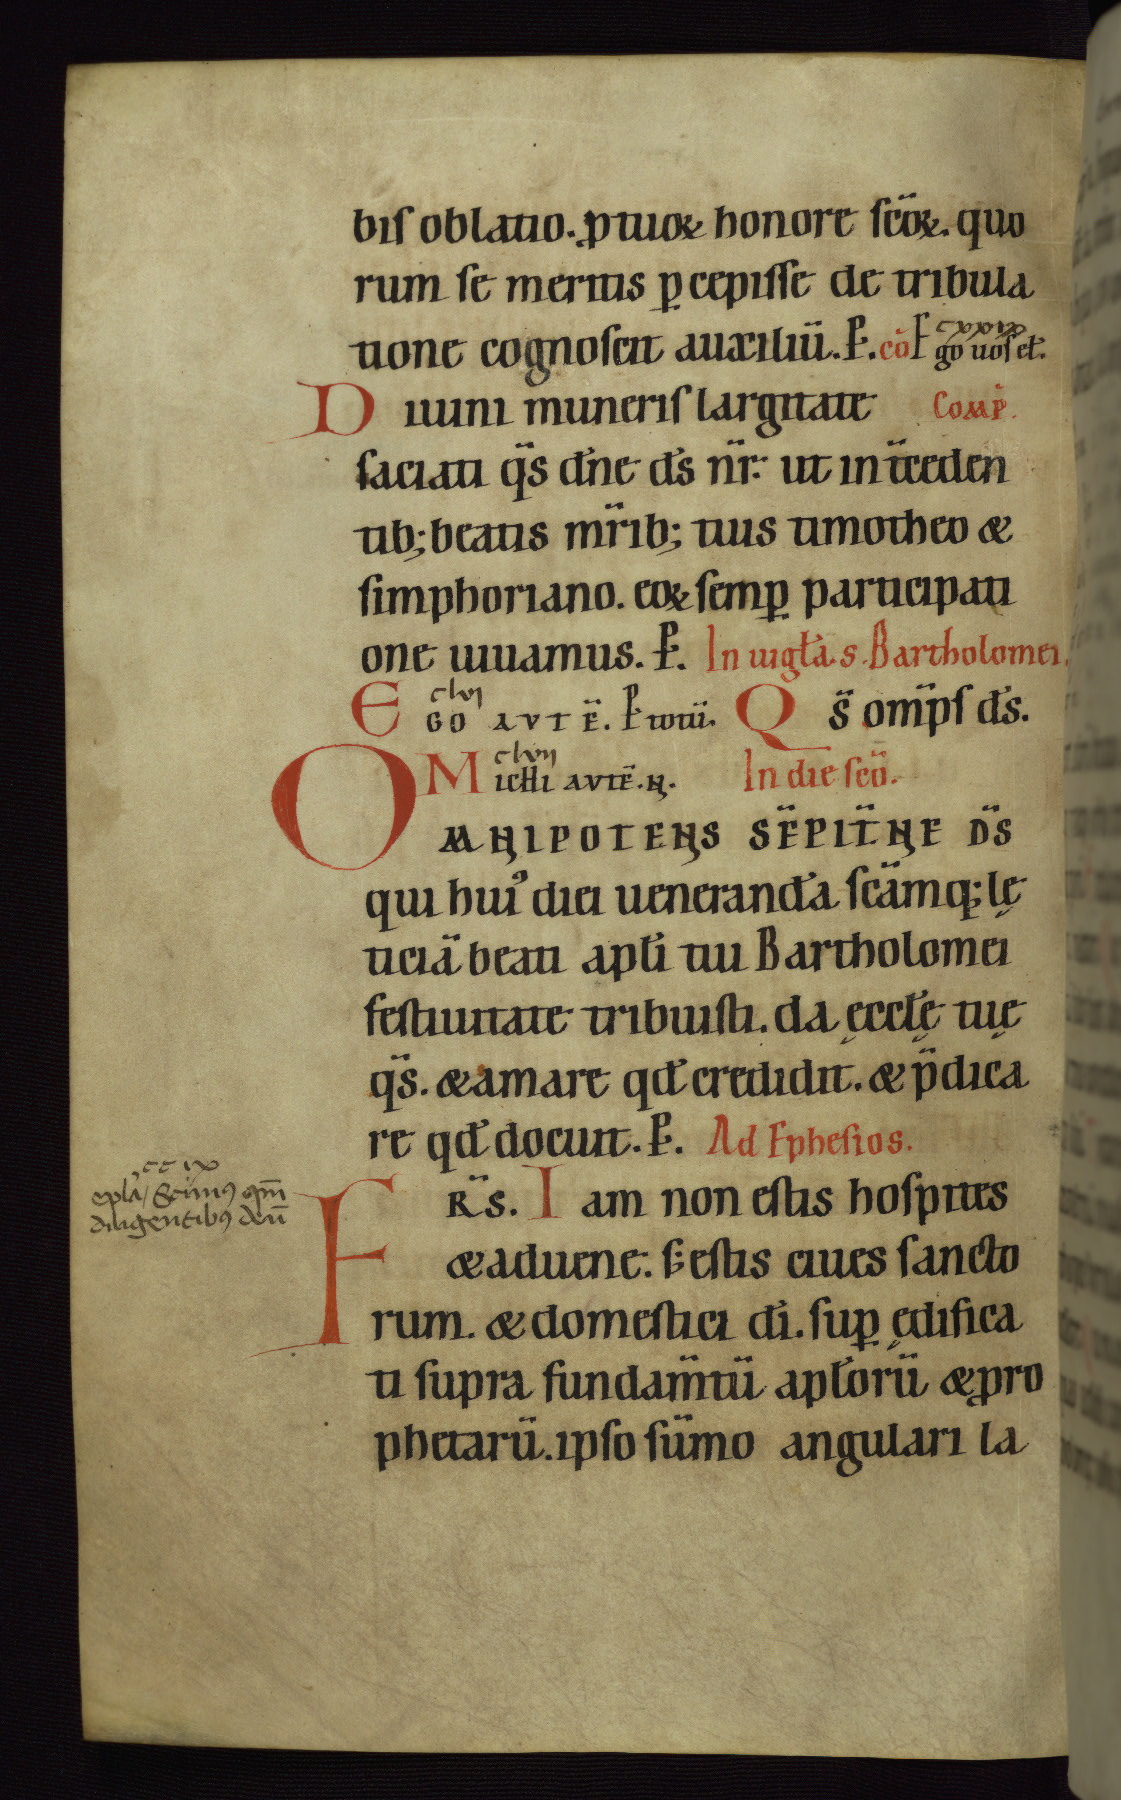 biſ oblatio. ꝓ tuoꝝ honore ſc̄oꝝ. quo
rum ſe meritis ꝑcepiſſe de tribula
tione cognoſcit auxiliū. P̄. cō Ego uoſ el̄. cxxix
Diuini muneriſ largitate Comp̄.
ſaciati q̄s dn̄e d̄s nr̄. ut interceden
tib; beatis mr̄ib; tuis timotheo &
ſimphoriano. eoꝝ ſemꝑ participati
one uiuamus. P̄. In uigl̄a. s. Bartholomei.
clvi
EGO AVTĒ. P̄ Qs̄ omp̄ſ d̄s.
clvii
MICHI AVTĒ. N. In die ſcō.
OMNIPOTENS SEPITNE DS
qui hui᾽ diei ueneranda ſcāmq; lę
ticiā beati apl̄i tui Bartholomei
feſtiuitate tribuiſti. da ęccl̄ę tuę
q̄s. & amare qd̄ credidit. & p̄dica
re qd̄ docuit. P̄. Ad Epheſios.
FR̄S. Iam non eſtis hoſpites
& aduene. ſ; eſtis ciues ſancto
rum. & domeſtici dī. ſuꝑ ędifica
ti ſupra fundam̄tū apl̄orū & ꝓro
phetarū. ipſo ſūmo angulari la
cc ix
epl̄a / Scimus qm̄
diligentibus deū